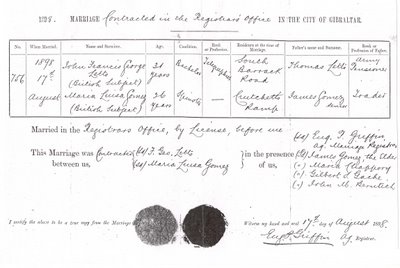 1898. MARRIAGE Contracted in the Registrars' Office IN THE CITY OF GIBRALTAR.
No. When Married. Name and Surname. Age. Condition. Rank or Profession. Residence at the time of Marriage. Father's name and Surname. Rank or Profession of Father.
756 1898 17th August
John Francis George Letts (British Subject) 31 years Bachelor Telegraphist South Barrack Road Thomas Letts Army Pensioner
Maria Luisa Gomez (British Subject) 36 years Spinster — Crutchetts Ramp James Gomez Senior Trader
Married in the Registrars Office, by License, before me
(sd) Eug. P. Griffin
ag. Marriage Registrar
This Marriage was Contracted between us (sd) F. Geo. Letts
(sd) Maria Luisa Gomez
in the presence of us
(sd) James Gomez, the Elder
(") Maria Chappory
(") Gilbert S. Gache
(") John M.
I certify the above to be a true copy from the Marriage
Witness my hand and seal 17th of August 1898.
Eug. P. Griffin Ag. Registrar.